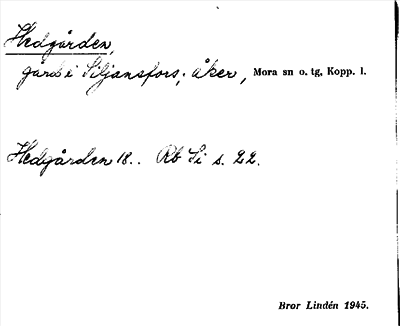 Hedgården,
gård i Siljansfors; åker, Mora sn o. tg, Kopp. l.
Hedgården 18.. Rb Si s. 22.
Bror Lindén 1945.